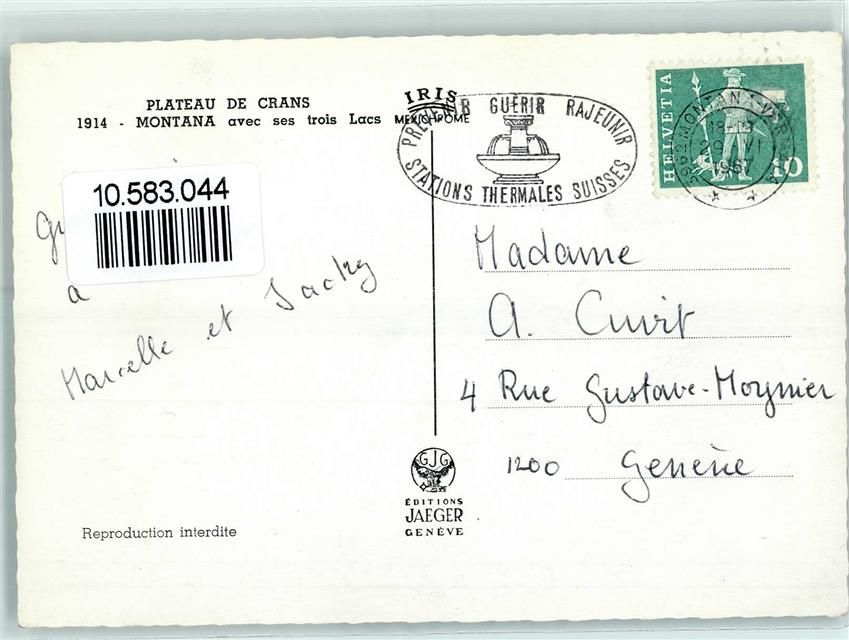 PLATEAU DE CRANS
1914 - MONTANA avec ses trois Lacs
IRIS
MEXICHROME
GUÉRIR RAJEUNIR
STATIONS THERMALES SUISSES
HELVETIA
10
3962 MONTANA-VERMALA
29 VI
10.583.044
à
Marcelle et Jacky
Madame
A. Cuvit
4 Rue Gustave-Moynier
1200 Genève
GJG
ÉDITIONS
JAEGER
GENÈVE
Reproduction interdite